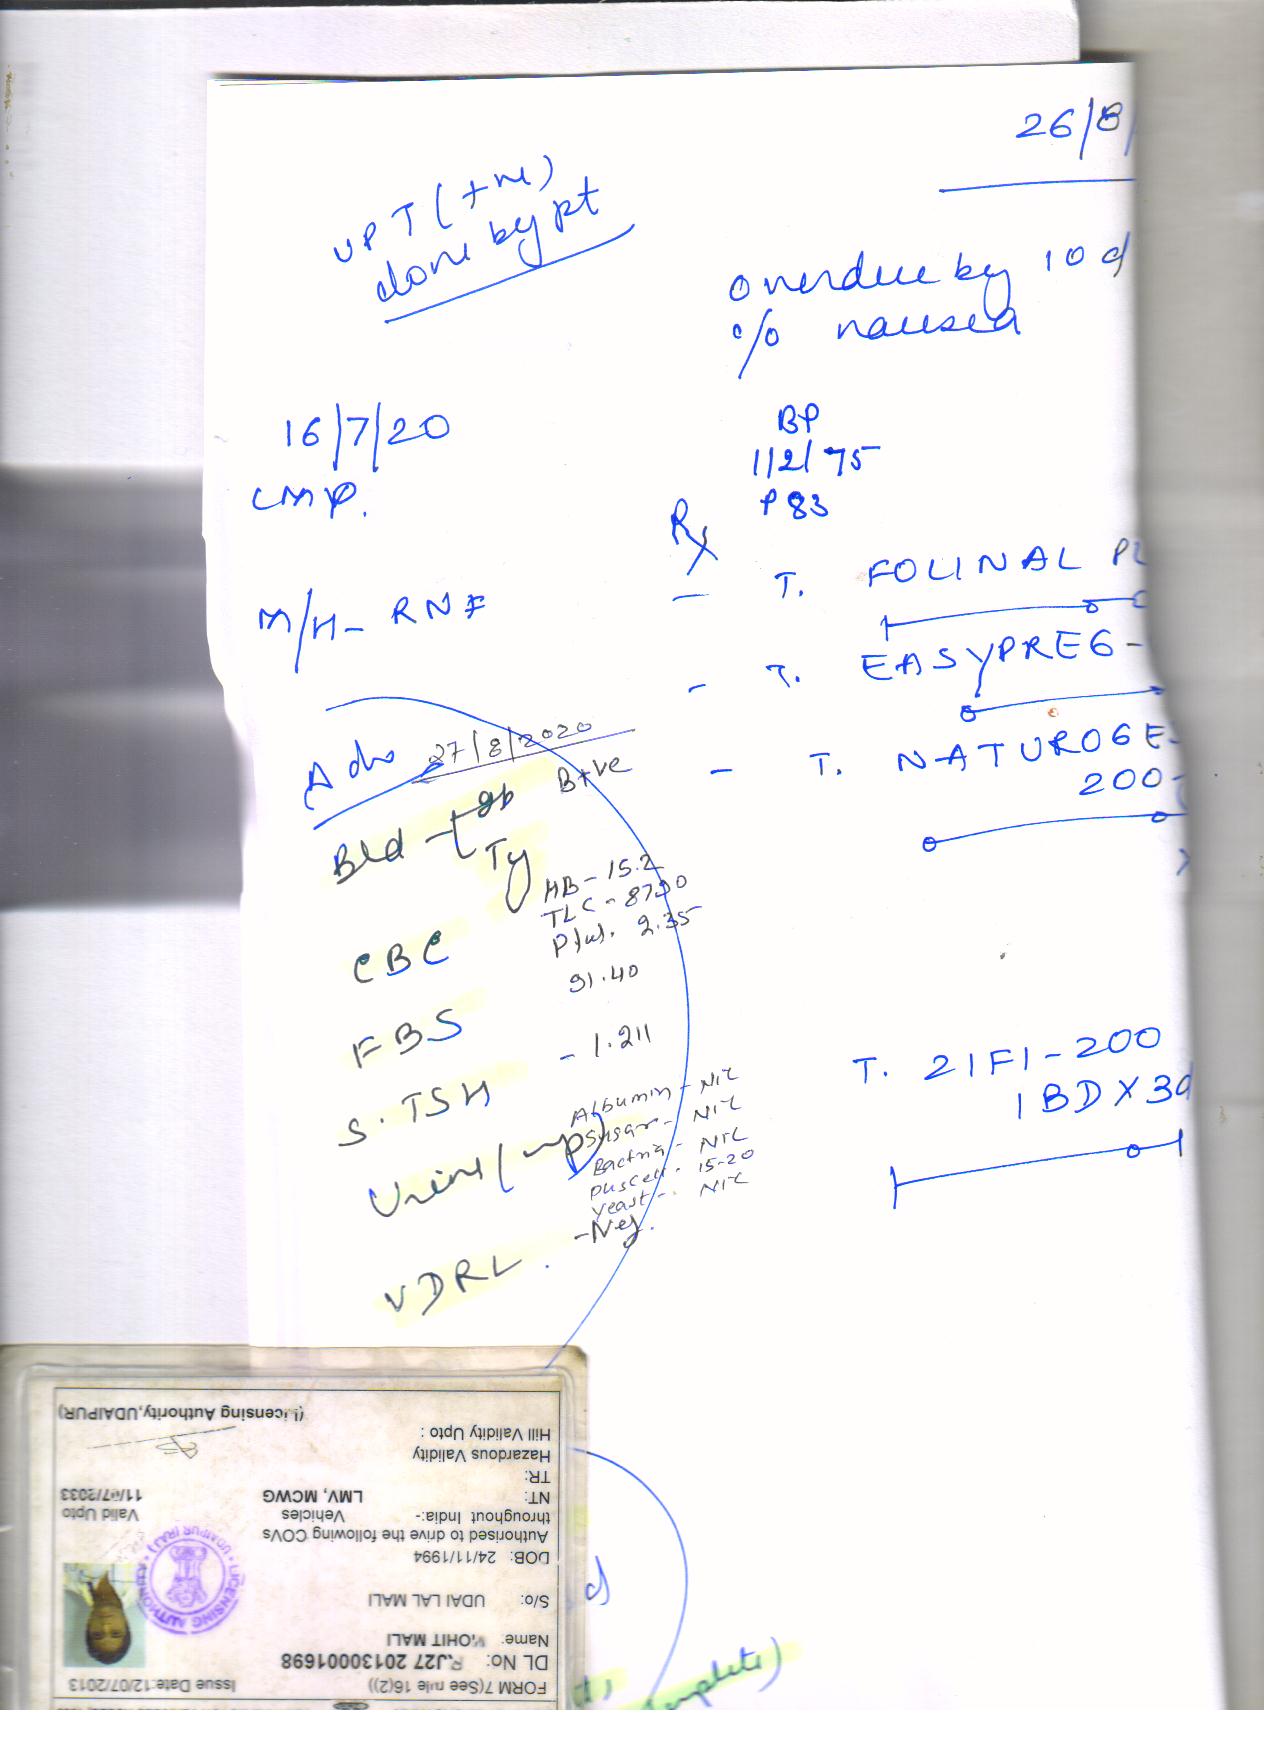 26/8/
UPT (+ve)
done by pt
overdue by 10 d
c/o nausea
16/7/20
LMP.
BP
112/75
P 83
Rx
M/H - RNF
- T. FOLINAL PL
- T. EASYPREG -
- T. NATUROGE
200
Adv 27/8/2020
Bld - gp B+ve
Ty
CBC HB - 15.2
TLC - 8790
Plat. 2.35
FBS 91.40
S. TSH - 1.211
Urine (mp)
Albumin - NIL
Sugar - NIL
Bactria - NIL
Puscell - 15-20
Yeast - NIL
VDRL. - Neg.
T. ZIFI-200
1 BD X 3d
FORM 7(See rule 16(2)) Issue Date:12/07/2013
DL No: RJ27 20130001698
Name: MOHIT MALI
S/o: UDAI LAL MALI
DOB: 24/11/1994
Authorised to drive the following COVs
throughout India:- Vehicles Valid Upto
NT: LMV, MCWG 11/07/2033
TR:
Hazardous Validity
Hill Validity Upto :
(Licensing Authority,UDAIPUR)
LICENSING AUTHORITY
UDAIPUR (RAJ.)
d
mplete)